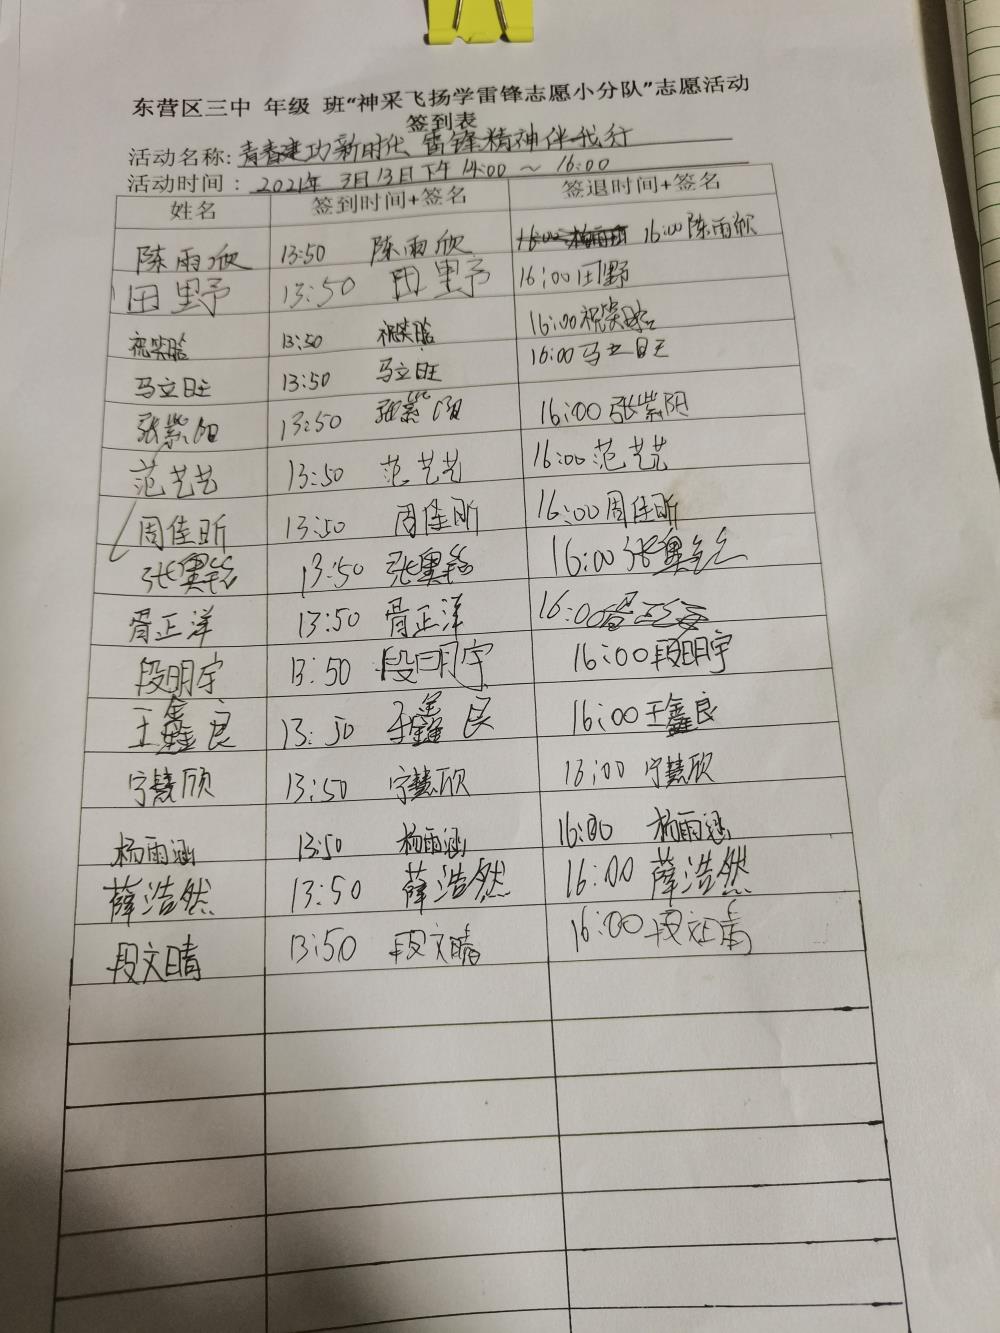 东营区三中 年级 班“神采飞扬学雷锋志愿小分队”志愿活动
签到表
活动名称: 青春建功新时代 雷锋精神伴我行
活动时间： 2021年 3月13日下午 14:00 ~ 16:00
姓名 签到时间+签名 签退时间+签名
陈雨欣 13:50 陈雨欣 16:00 陈雨欣
田野 13:50 田野 16:00 田野
祝笑晗 13:50 祝笑晗 16:00 祝笑晗
马立旺 13:50 马立旺 16:00 马立旺
张紫阳 13:50 张紫阳 16:00 张紫阳
范艺艺 13:50 范艺艺 16:00 范艺艺
周佳昕 13:50 周佳昕 16:00 周佳昕
张 13:50 张 16:00 张
胥正洋 13:50 胥正洋 16:00
段明宇 13:50 段明宇 16:00 段明宇
王鑫良 13:50 王鑫良 16:00 王鑫良
宁慧欣 13:50 宁慧欣 16:00 宁慧欣
杨雨涵 13:50 杨雨涵 16:00 杨雨涵
薛浩然 13:50 薛浩然 16:00 薛浩然
段文晴 13:50 段文晴 16:00 段文晴